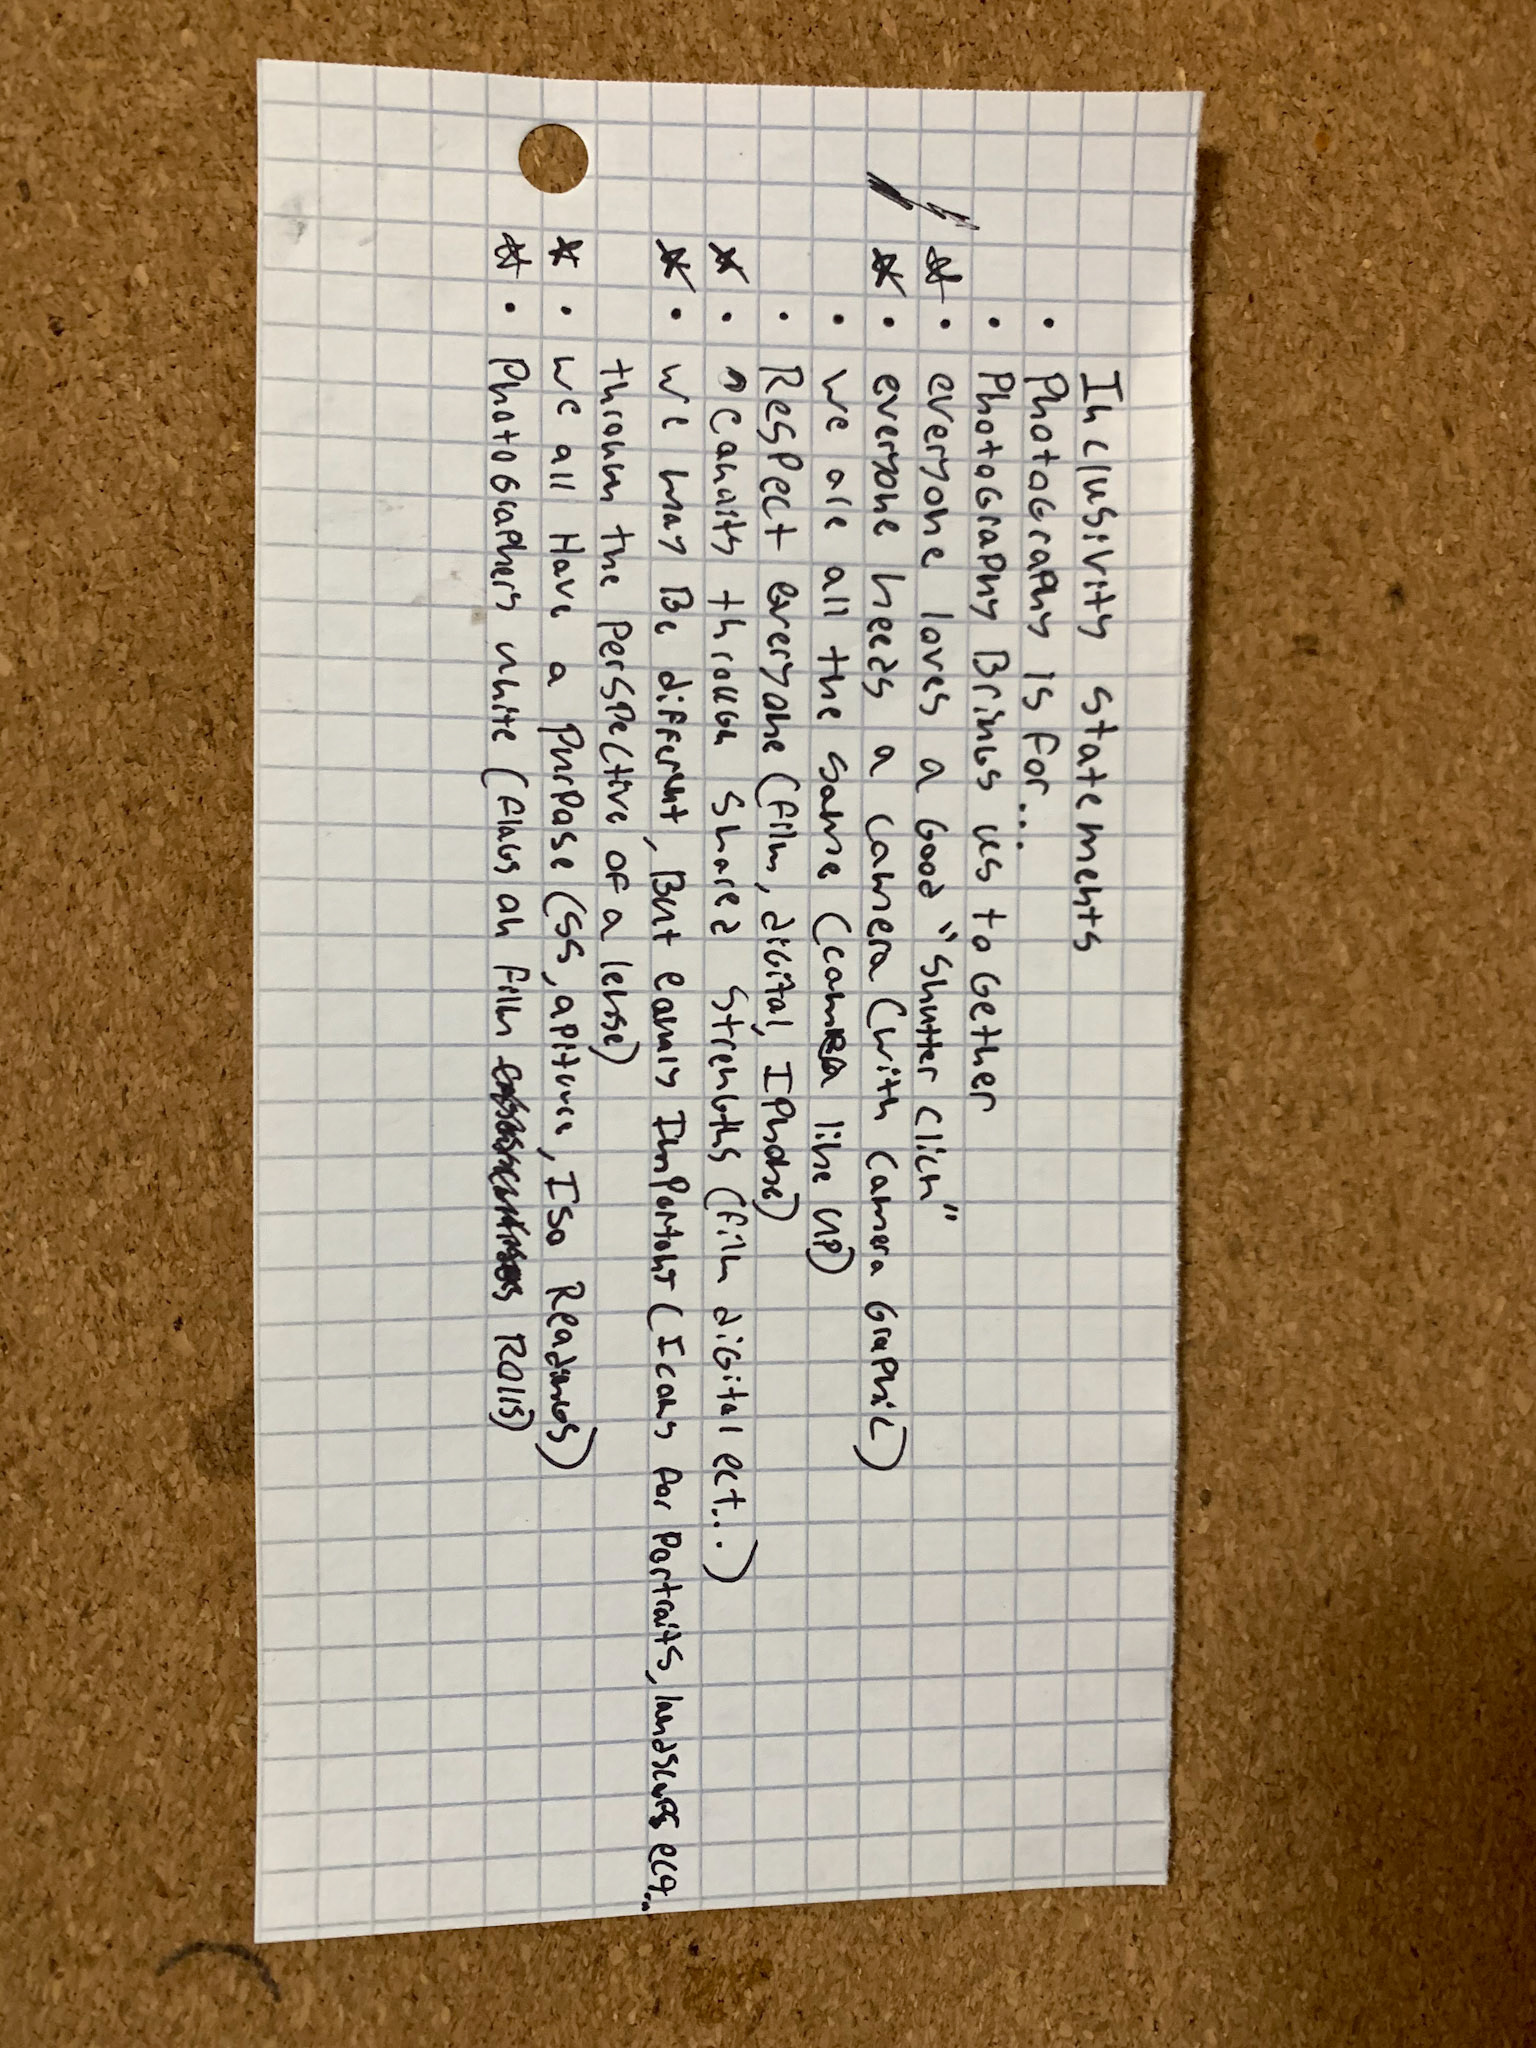 Inclusivity statements
• Photography is for...
• Photography Brings us together
• everyone loves a Good "shutter click"
• everyone needs a camera (with camera Graphic)
• we are all the same (camera line up)
• Respect everyone (film, digital, IPhone)
• through shared strengths (film digital ect...)
• we may Be different, But Important (Icons for Portraits, landscapes ect...
through the Perspective of a lense)
• we all Have a PurPose (SS, apiture, Iso Readings)
• Photographers unite (flags on film Rolls)